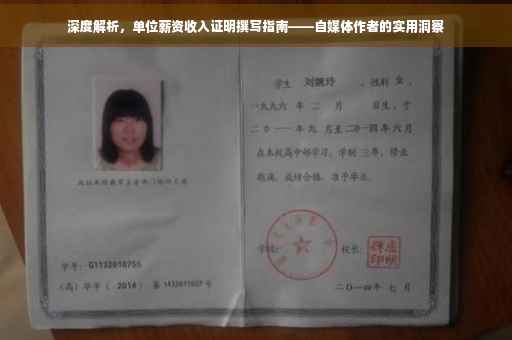 深度解析，单位薪资收入证明撰写指南——自媒体作者的实用洞察
学生 刘婉玲 ，性别 女 ，
一九九六 年 二 月 日生，于
二〇一一 年 九 月至 二〇一四 年 六 月
在本校高中部学习，学制 三 年，修业
期满，成绩合格，准予毕业。
学号： G1132010755
（高）毕字（ 2014 ）第 1432011607 号
学校：
校长：
二〇一四年 七 月